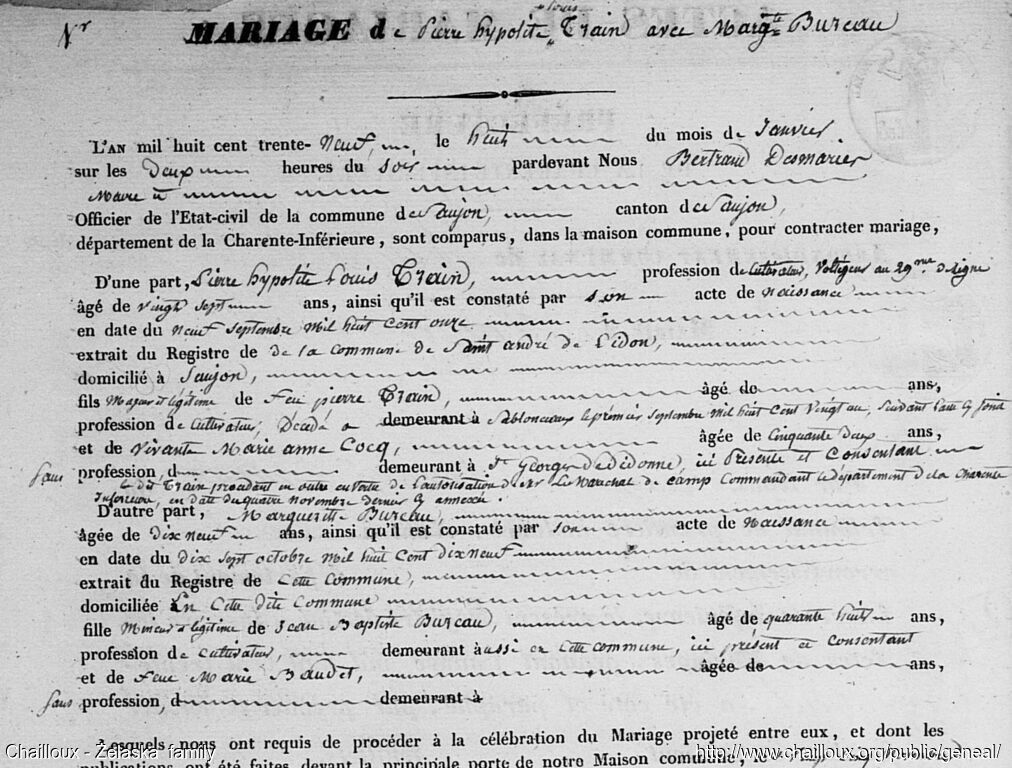 Nr MARIAGE de Pierre hypolite Louis Train avec Margte Bureau
L'AN mil huit cent trente-Neuf, le huit du mois de Janvier
sur les Deux heures du Soir pardevant Nous Bertrand Desmarier
Maire
Officier de l'Etat-civil de la commune de Saujon, canton de Saujon,
département de la Charente-Inférieure, sont comparus, dans la maison commune, pour contracter mariage,
D'une part, Pierre hypolite Louis Train, profession de Cultivateur, Voltigeur au 29me de Ligne
âgé de Vingt Sept ans, ainsi qu'il est constaté par son acte de Naissance
en date du Neuf Septembre Mil huit Cent onze
extrait du Registre de de la commune de Saint andré de Lidon,
domicilié à Saujon,
fils Majeur et légitime de Feu pierre Train, âgé de ans,
profession de Cultivateur, Décédé a demeurant à Sablonceaux le premier Septembre Mil huit Cent Vingt au, Suivant l'acte cy Joint
et de Vivante Marie anne Cocq, âgée de Cinquante deux ans,
Sans profession, d demeurant à St Georges de Didonne, ici Présente et Consentant
Le dit Train procédant en outre en vertu de l'autorisation de Mr Le Maréchal de camp Commandant le département de la Charente
Inférieure, en date du quatre Novembre dernier cy annexée.
D'autre part, Marguerite Bureau,
âgée de dix neuf ans, ainsi qu'il est constaté par son acte de Naissance
en date du Dix Sept octobre Mil huit Cent Dix Neuf
extrait du Registre de Cette Commune,
domiciliée En Cette dite Commune
fille Mineure et légitime de Jean Baptiste Bureau, âgé de quarante huit ans,
profession de Cultivateur, demeurant aussi en Cette commune, ici présent et Consentant
et de Feue Marie Baudet, âgée de ans,
Sans profession, d demeurant à
Lesquels nous ont requis de procéder à la célébration du Mariage projeté entre eux, et dont les
publications ont été faites devant la principale porte de notre Maison commune,
Chailloux - Zelaska family
http://www.chailloux.org/public/geneal/